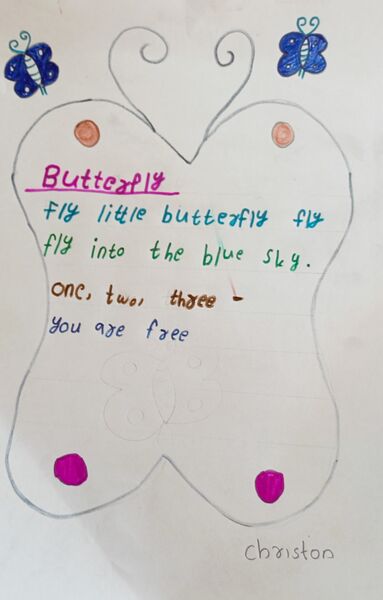 Butterfly
Fly little butterfly fly
fly into the blue sky.
one, two, three -
you are free
christon